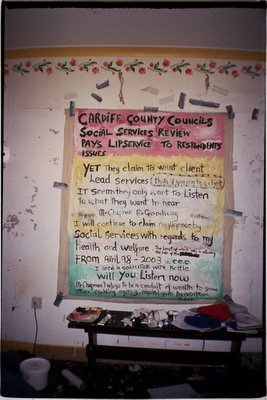 CARDIFF COUNTY COUNCILS
SOCIAL SERVICES REVIEW
PAYS LIPSERVICE TO RESPONDENTS
ISSUES
YET They claim to want client
Lead services
IT seems they only want to Listen
to what they want to hear
Mr Chapman Mr Goodway
I will continue to claim negligence by
Social Services with regards to my
health and welfare
FROM April 98 - 2003
I need a solicitor with Bottle
will You Listen now
Mr Chapman I refuse to be a conduit of wealth to some
other enabling agency